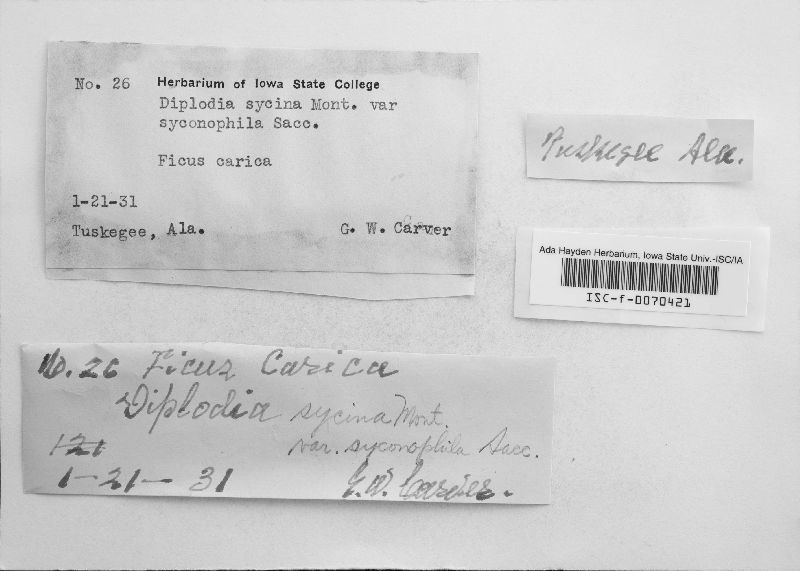 No. 26 Herbarium of Iowa State College
Diplodia sycina Mont. var
syconophila Sacc.
Ficus carica
1-21-31
Tuskegee, Ala. G. W. Carver
Tuskegee Ala.
Ada Hayden Herbarium, Iowa State Univ.-ISC/IA
ISC-f-0070421
No. 26 Ficus Carica
Diplodia sycina Mont.
var. syconophila Sacc.
121
1-21-31 G. W. Carver.